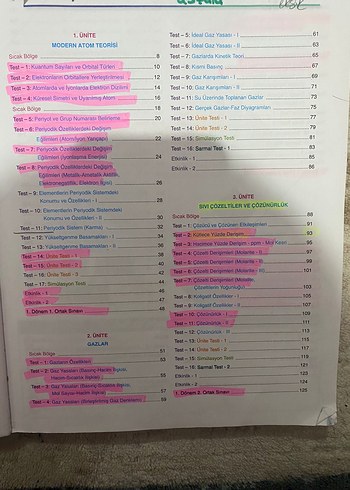 1. ÜNİTE
MODERN ATOM TEORİSİ
Sıcak Bölge 8
Test – 1: Kuantum Sayıları ve Orbital Türleri 10
Test – 2: Elektronların Orbitallere Yerleştirilmesi 12
Test – 3: Atomlarda ve İyonlarda Elektron Düzeni 14
Test – 4: Küresel Simetri ve Uyarılmış Atom 16
Sıcak Bölge 18
Test – 5: Periyot ve Grup Numarası Belirleme 20
Test – 6: Periyodik Özelliklerdeki Değişim
Eğilimleri (Atom/İyon Yarıçapı) 22
Test – 7: Periyodik Özelliklerdeki Değişim
Eğilimleri (İyonlaşma Enerjisi) 24
Test – 8: Periyodik Özelliklerdeki Değişim
Eğilimleri (Metalik-Ametalik Aktiflik,
Elektronegatiflik, Elektron İlgisi) 26
Test – 9: Elementlerin Periyodik Sistemdeki
Konumu ve Özellikleri - I 28
Test – 10: Elementlerin Periyodik Sistemdeki
Konumu ve Özellikleri - II 30
Test – 11: Periyodik Sistem (Karma) 32
Test – 12: Yükseltgenme Basamakları - I 34
Test – 13: Yükseltgenme Basamakları - II 36
Test – 14: Ünite Testi - 1 38
Test – 15: Ünite Testi - 2 40
Test – 16: Ünite Testi - 3 42
Test – 17: Simülasyon Testi 44
Etkinlik - 1 46
Etkinlik - 2 47
1. Dönem 1. Ortak Sınavı 48
2. ÜNİTE
GAZLAR
Sıcak Bölge 51
Test – 1: Gazların Özellikleri 53
Test – 2: Gaz Yasaları (Basınç-Hacim İlişkisi,
Hacim-Sıcaklık İlişkisi) 55
Test – 3: Gaz Yasaları (Basınç-Sıcaklık İlişkisi,
Mol Sayısı-Hacim İlişkisi) 57
Test – 4: Gaz Yasaları (Birleştirilmiş Gaz Denklemi) 59
Test – 5: İdeal Gaz Yasası - I 61
Test – 6: İdeal Gaz Yasası - II 63
Test – 7: Gazlarda Kinetik Teori 65
Test – 8: Kısmi Basınç 67
Test – 9: Gaz Karışımları - I 69
Test – 10: Gaz Karışımları - II 71
Test – 11: Su Üzerinde Toplanan Gazlar 73
Test – 12: Gerçek Gazlar-Faz Diyagramları 75
Test – 13: Ünite Testi - 1 77
Test – 14: Ünite Testi - 2 79
Test – 15: Simülasyon Testi 81
Test – 16: Sarmal Test - 1 83
Etkinlik - 1 85
Etkinlik - 2 86
3. ÜNİTE
SIVI ÇÖZELTİLER VE ÇÖZÜNÜRLÜK
Sıcak Bölge 88
Test – 1: Çözücü ve Çözünen Etkileşimleri 91
Test – 2: Kütlece Yüzde Derişim 93
Test – 3: Hacimce Yüzde Derişim - ppm - Mol Kesri 95
Test – 4: Çözelti Derişimleri (Molarite - I) 97
Test – 5: Çözelti Derişimleri (Molarite - II) 99
Test – 6: Çözelti Derişimleri (Molarite - III) 101
Test – 7: Çözelti Derişimleri (Molalite -
Çözeltinin Yoğunluğu) 103
Test – 8: Koligatif Özellikler - I 105
Test – 9: Koligatif Özellikler - II 107
Test – 10: Çözünürlük - I 109
Test – 11: Çözünürlük - II 111
Test – 12: Çözünürlük - III 113
Test – 13: Ünite Testi - 1 115
Test – 14: Ünite Testi - 2 117
Test – 15: Simülasyon Testi 119
Test – 16: Sarmal Test - 2 121
Etkinlik - 1 123
Etkinlik - 2 124
1. Dönem 2. Ortak Sınavı 125